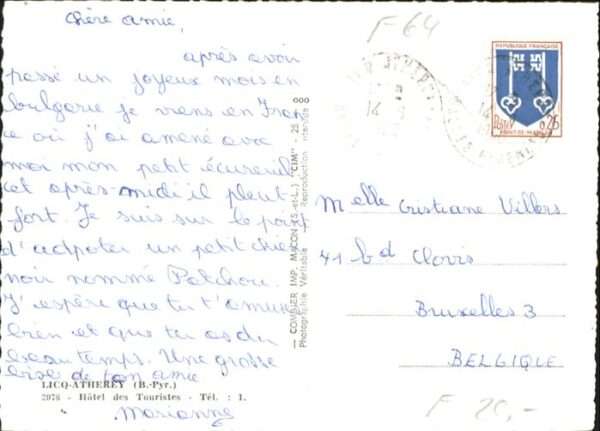 Chère amie,
après avoir
passé un joyeux mois en
bulgarie je viens en Fran
ce où j'ai amené avec
moi mon petit écureuil
cet après-midi il pleut
fort. Je suis sur le point
d'adopter un petit chien
noir nommé Patchou.
J'espère que tu t'amuses
bien et que tu as du
beau temps. Une grosse
bise de ton amie
Marianne
LICQ-ATHEREY (B.-Pyr.)
2076 - Hôtel des Touristes - Tél. : 1.
— COMBIER IMP. MACON (S.-et-L.) "CIM" -
Photographie Véritable - Reproduction interdite
F 64
REPUBLIQUE FRANÇAISE
0,25
MONT-DE-MARSAN
Melle Cristiane Villers
41 bd Clovis
Bruxelles 3
BELGIQUE
F 20,-